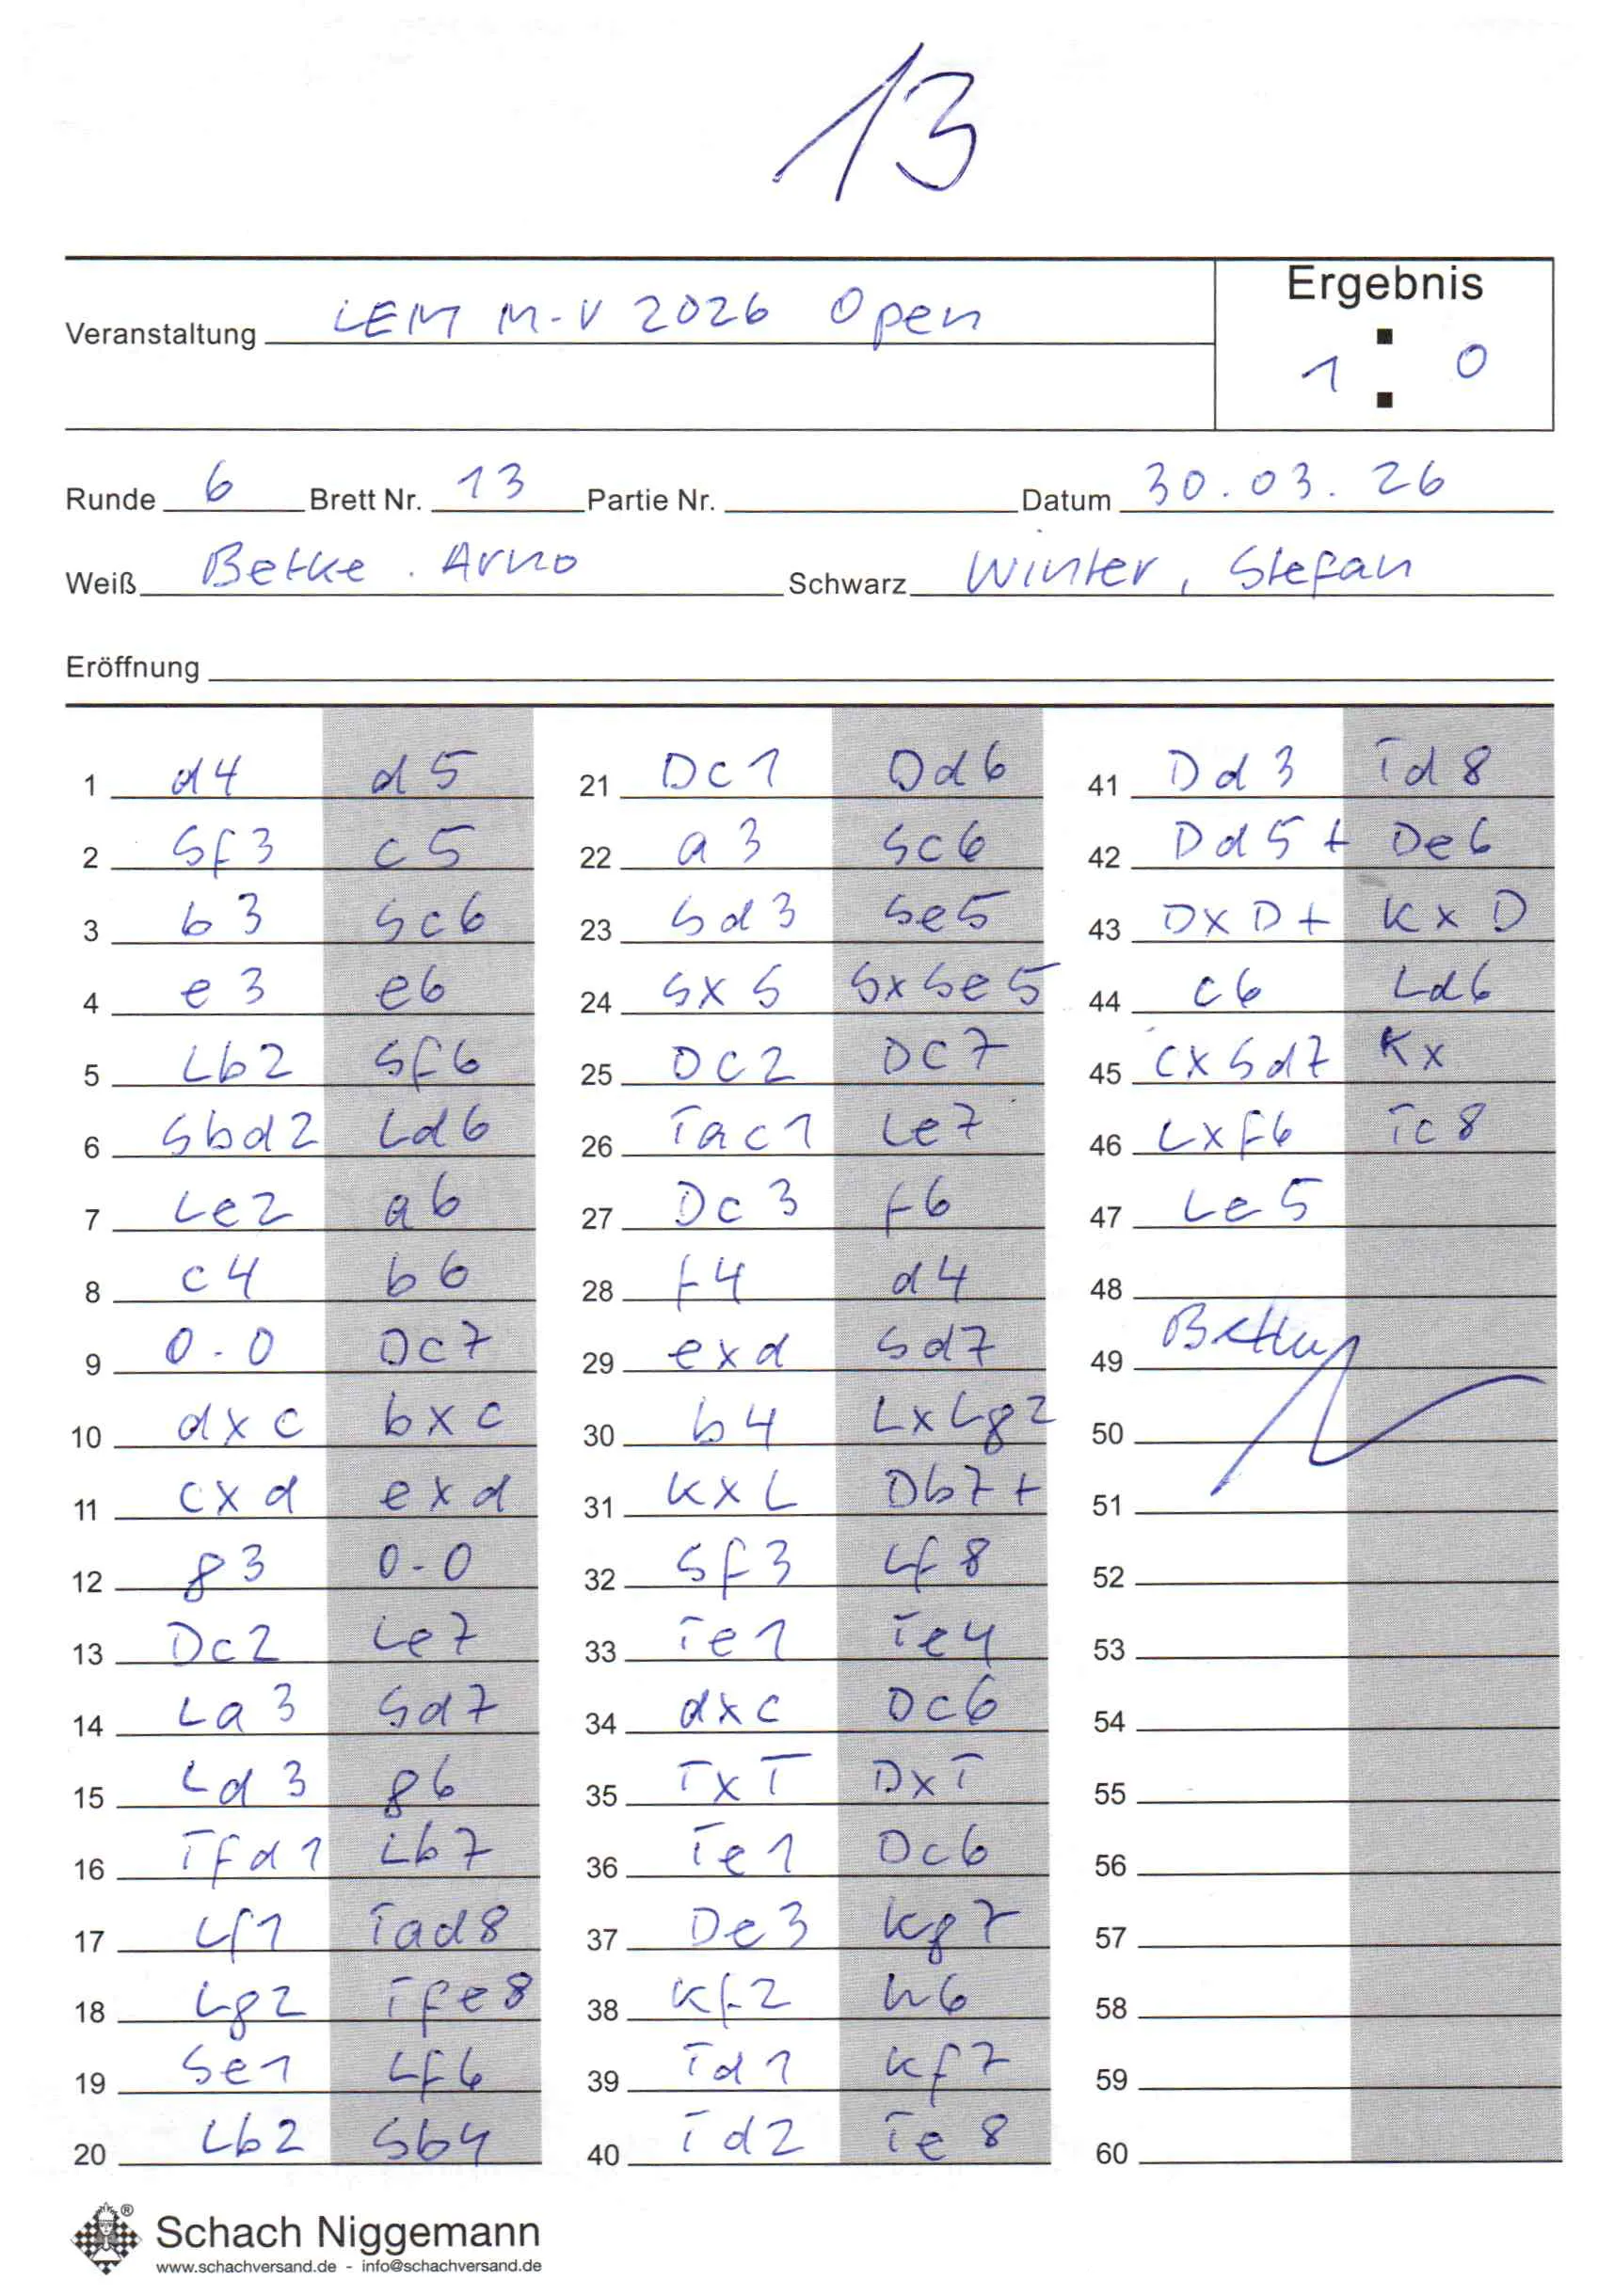 13
Ergebnis
Veranstaltung LEM M-V 2026 Open
1 : 0
Runde 6 Brett Nr. 13 Partie Nr. Datum 30.03.26
Weiß Betke. Arno Schwarz Winter, Stefan
Eröffnung
1 d4 d5
2 Sf3 c5
3 b3 Sc6
4 e3 e6
5 Lb2 Sf6
6 Sbd2 Ld6
7 Le2 a6
8 c4 b6
9 0-0 Dc7
10 dxc bxc
11 cxd exd
12 g3 0-0
13 Dc2 Le7
14 La3 Sd7
15 Ld3 g6
16 Tfd1 Lb7
17 Lf1 Tad8
18 Lg2 Tfe8
19 Se1 Lf6
20 Lb2 Sb4
21 Dc1 Dd6
22 a3 Sc6
23 Sd3 Se5
24 SxS SxSe5
25 DC2 DC7
26 Tac1 Le7
27 Dc3 f6
28 f4 d4
29 exd Sd7
30 b4 LxLg2
31 KxL Db7+
32 Sf3 Lf8
33 Te1 Te4
34 dxc Dc6
35 TxT DxT
36 Te1 Dc6
37 De3 Kg7
38 Kf2 h6
39 Td1 Kf7
40 Td2 Te8
41 Dd3 Td8
42 Dd5+ De6
43 DxD+ KxD
44 c6 Ld6
45 cxSd7 Kx
46 Lxf6 Tc8
47 Le5
48
49
50
51
52
53
54
55
56
57
58
59
60
Schach Niggemann
www.schachversand.de - info@schachversand.de